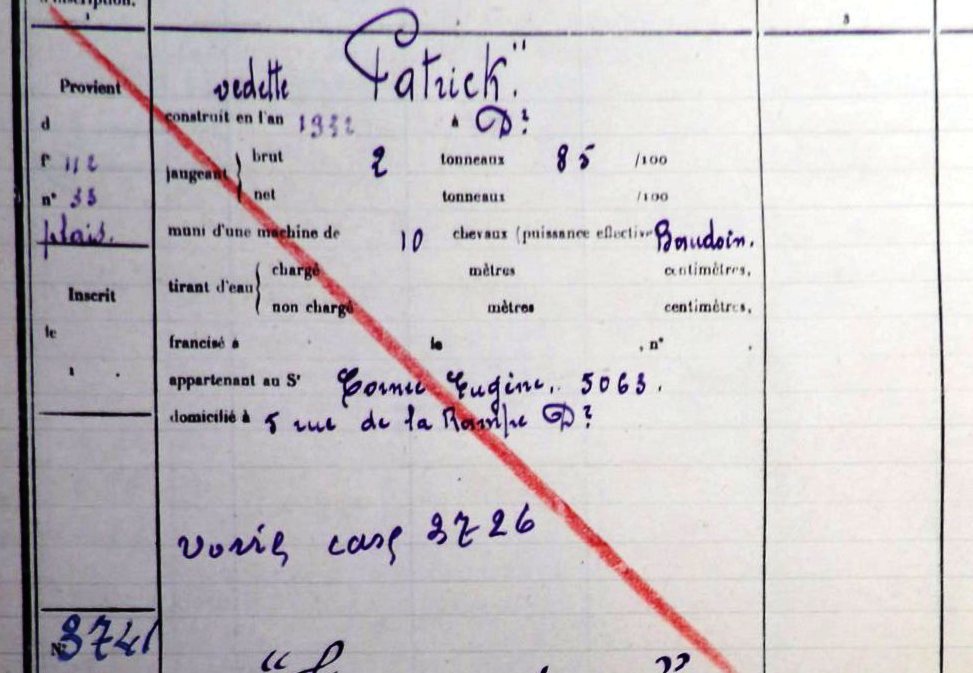 d'inscription.
1
3
Provient
vedette Patrick."
d
construit en l'an 1932 à D?
f° 112
jaugeant brut 2 tonneaux 85 /100
n° 33
net tonneaux /100
plais.
muni d'une machine de 10 chevaux (puissance effective Baudoin.
tirant d'eau chargé mètres centimètres,
non chargé mètres centimètres,
Inscrit
le
francisé à le , n° .
appartenant au Sr Cornu Eugène. 5063.
domicilié à 5 rue de la Rampe D?
voir case 3726
N° 3741